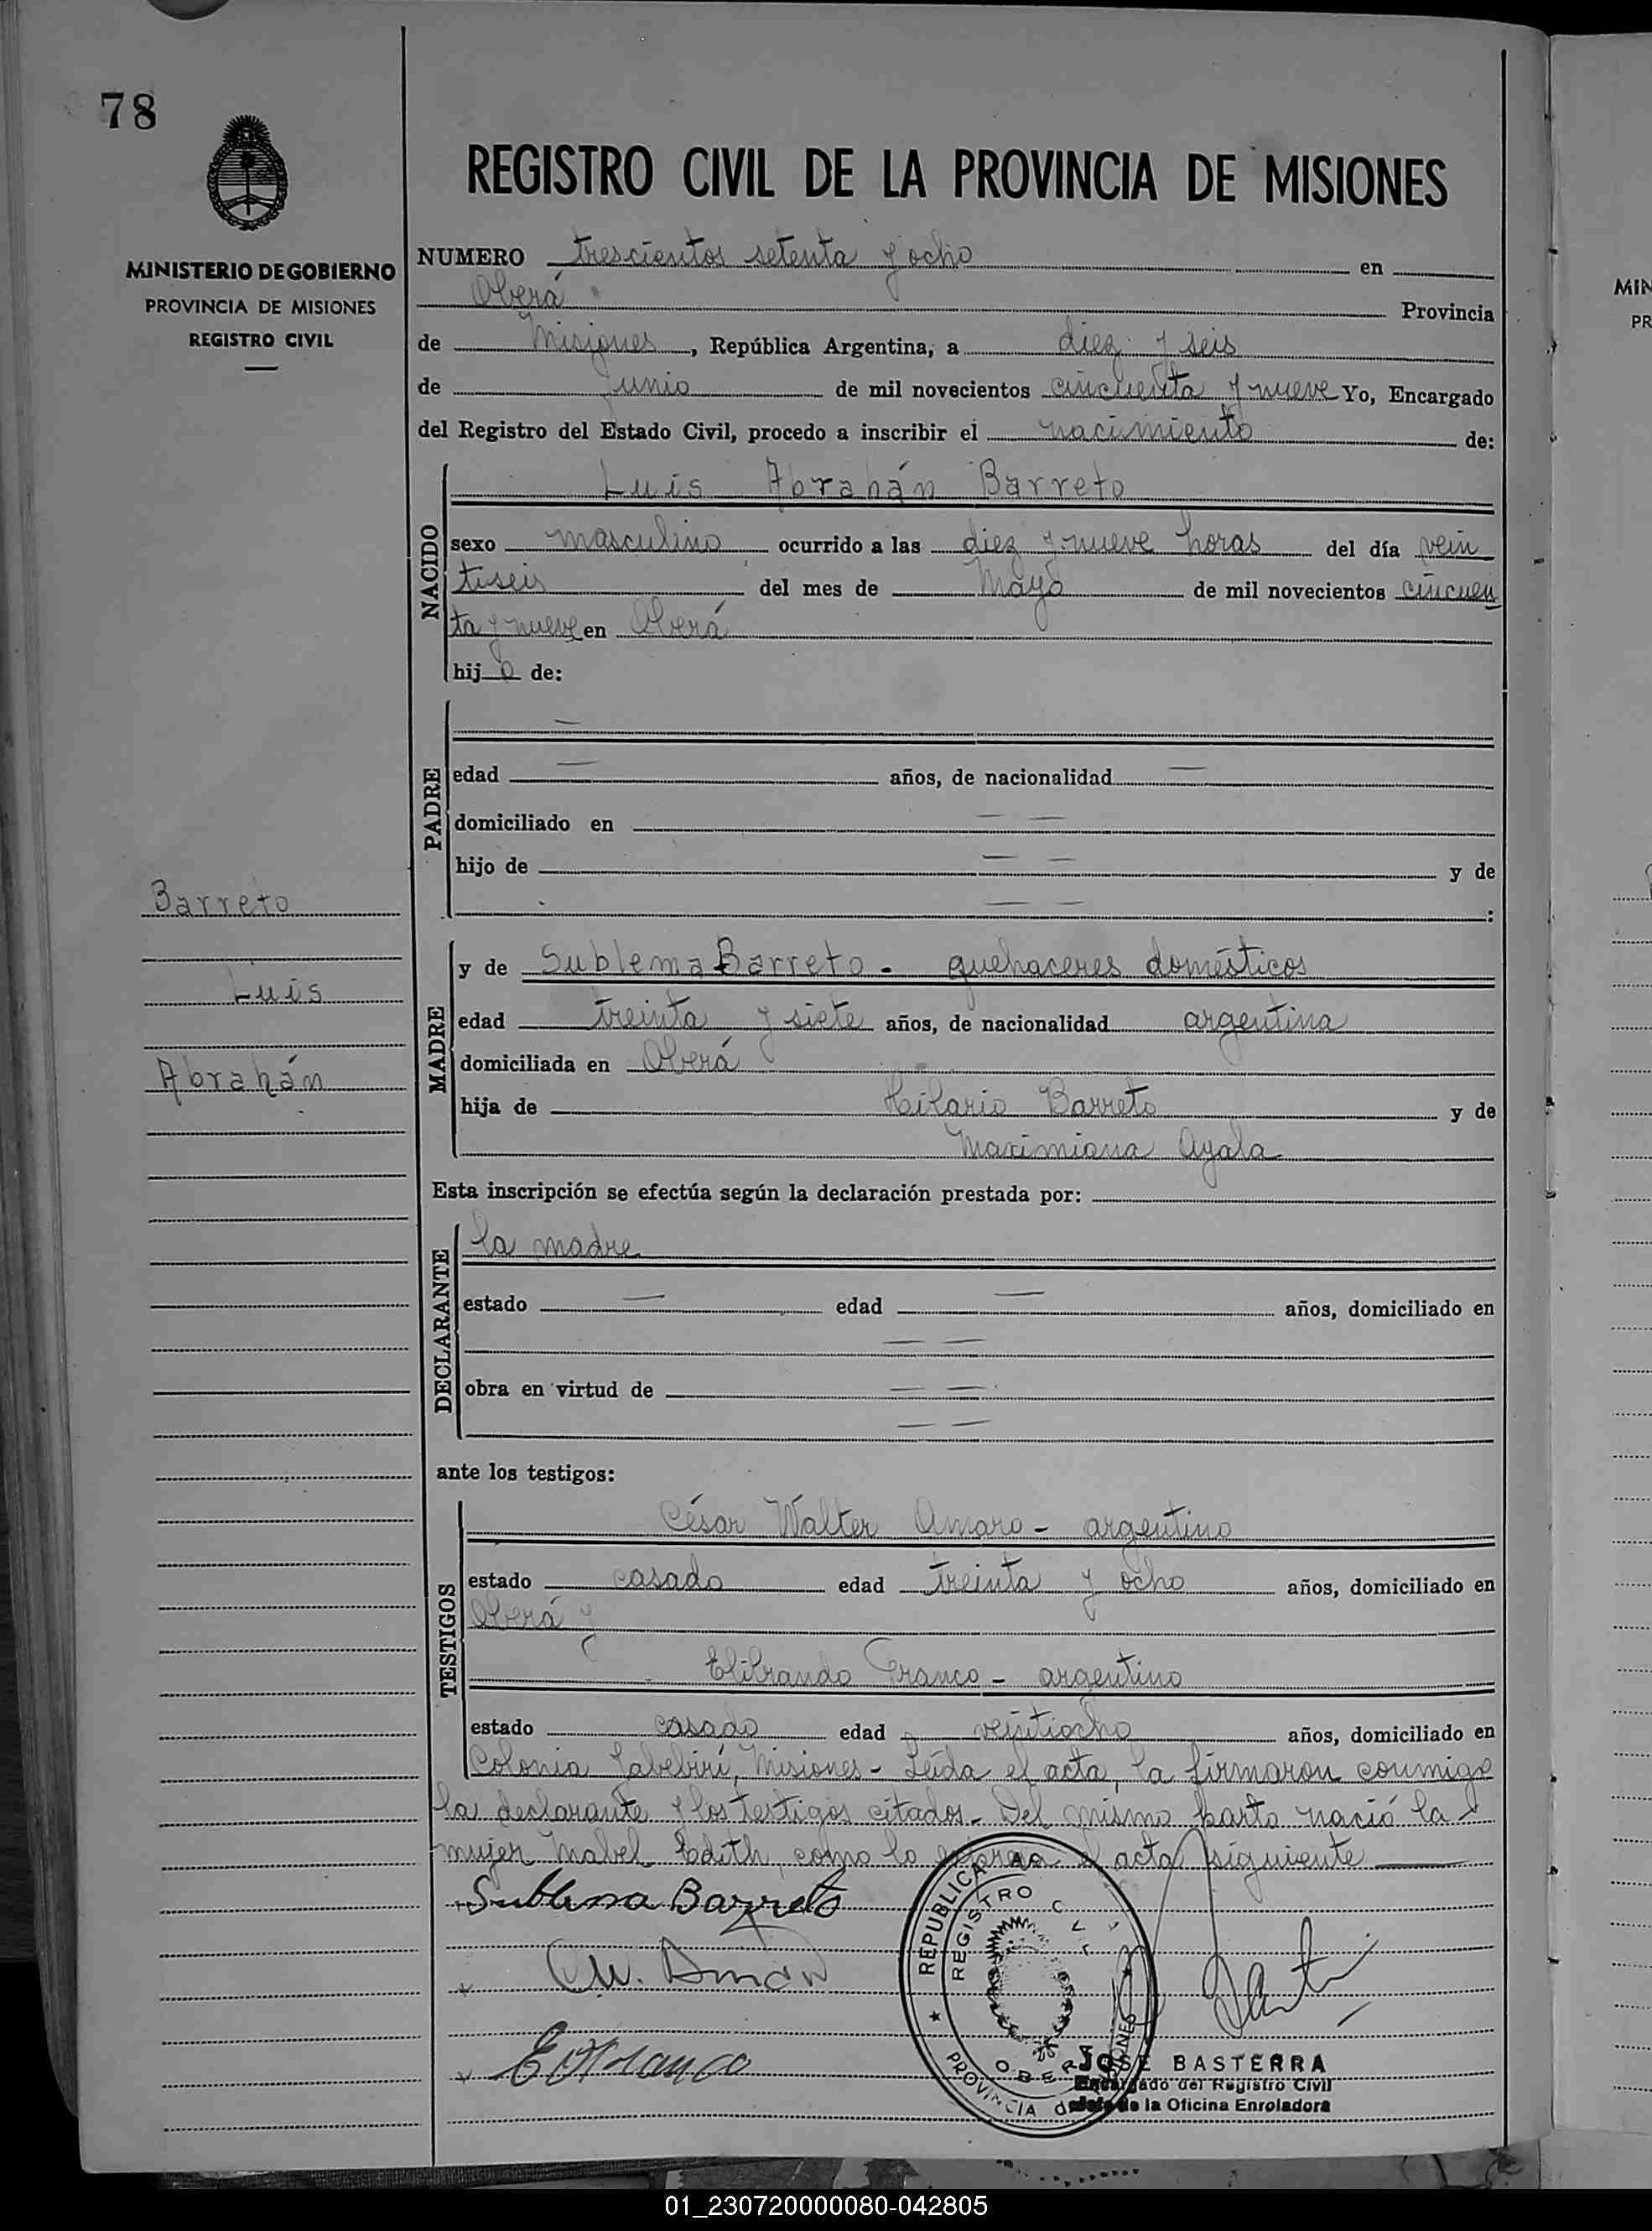 78
MINISTERIO DE GOBIERNO
PROVINCIA DE MISIONES
REGISTRO CIVIL
Barreto
Luis
Abrahán
REGISTRO CIVIL DE LA PROVINCIA DE MISIONES
NUMERO trescientos setenta y ocho en
Oberá Provincia
de Misiones, República Argentina, a diez y seis
de Junio de mil novecientos cincuenta y nueve Yo, Encargado
del Registro del Estado Civil, procedo a inscribir el nacimiento de:
NACIDO
Luis Abrahán Barreto
sexo masculino ocurrido a las diez y nueve horas del día vein
tiseis del mes de Mayo de mil novecientos cincuen
ta y nueve en Oberá
hijo de:
PADRE
—
edad — años, de nacionalidad —
domiciliado en — —
hijo de — — y de
— — :
MADRE
y de Sublema Barreto - quehaceres domésticos
edad treinta y siete años, de nacionalidad argentina
domiciliada en Oberá
hija de Hilario Barreto y de
Maximiana Ayala
Esta inscripción se efectúa según la declaración prestada por:
DECLARANTE
la madre
estado — edad — años, domiciliado en
— —
obra en virtud de — —
— —
ante los testigos:
TESTIGOS
César Walter Amaro - argentino
estado casado edad treinta y ocho años, domiciliado en
Oberá y
Elibrando Franco - argentino
estado casado edad veintiocho años, domiciliado en
Colonia Yabebirí, Misiones - Leída el acta, la firmaron conmigo
la declarante y los testigos citados - Del mismo parto nació la
mujer Mabel Edith, como lo expresa el acta siguiente —
Sublema Barreto
REPUBLICA
REGISTRO CIVIL
OBERA
PROVINCIA de MISIONES
JOSE BASTERRA
Encargado del Registro Civil
Jefe de la Oficina Enroladora
MIN
PR
01_230720000080-042805